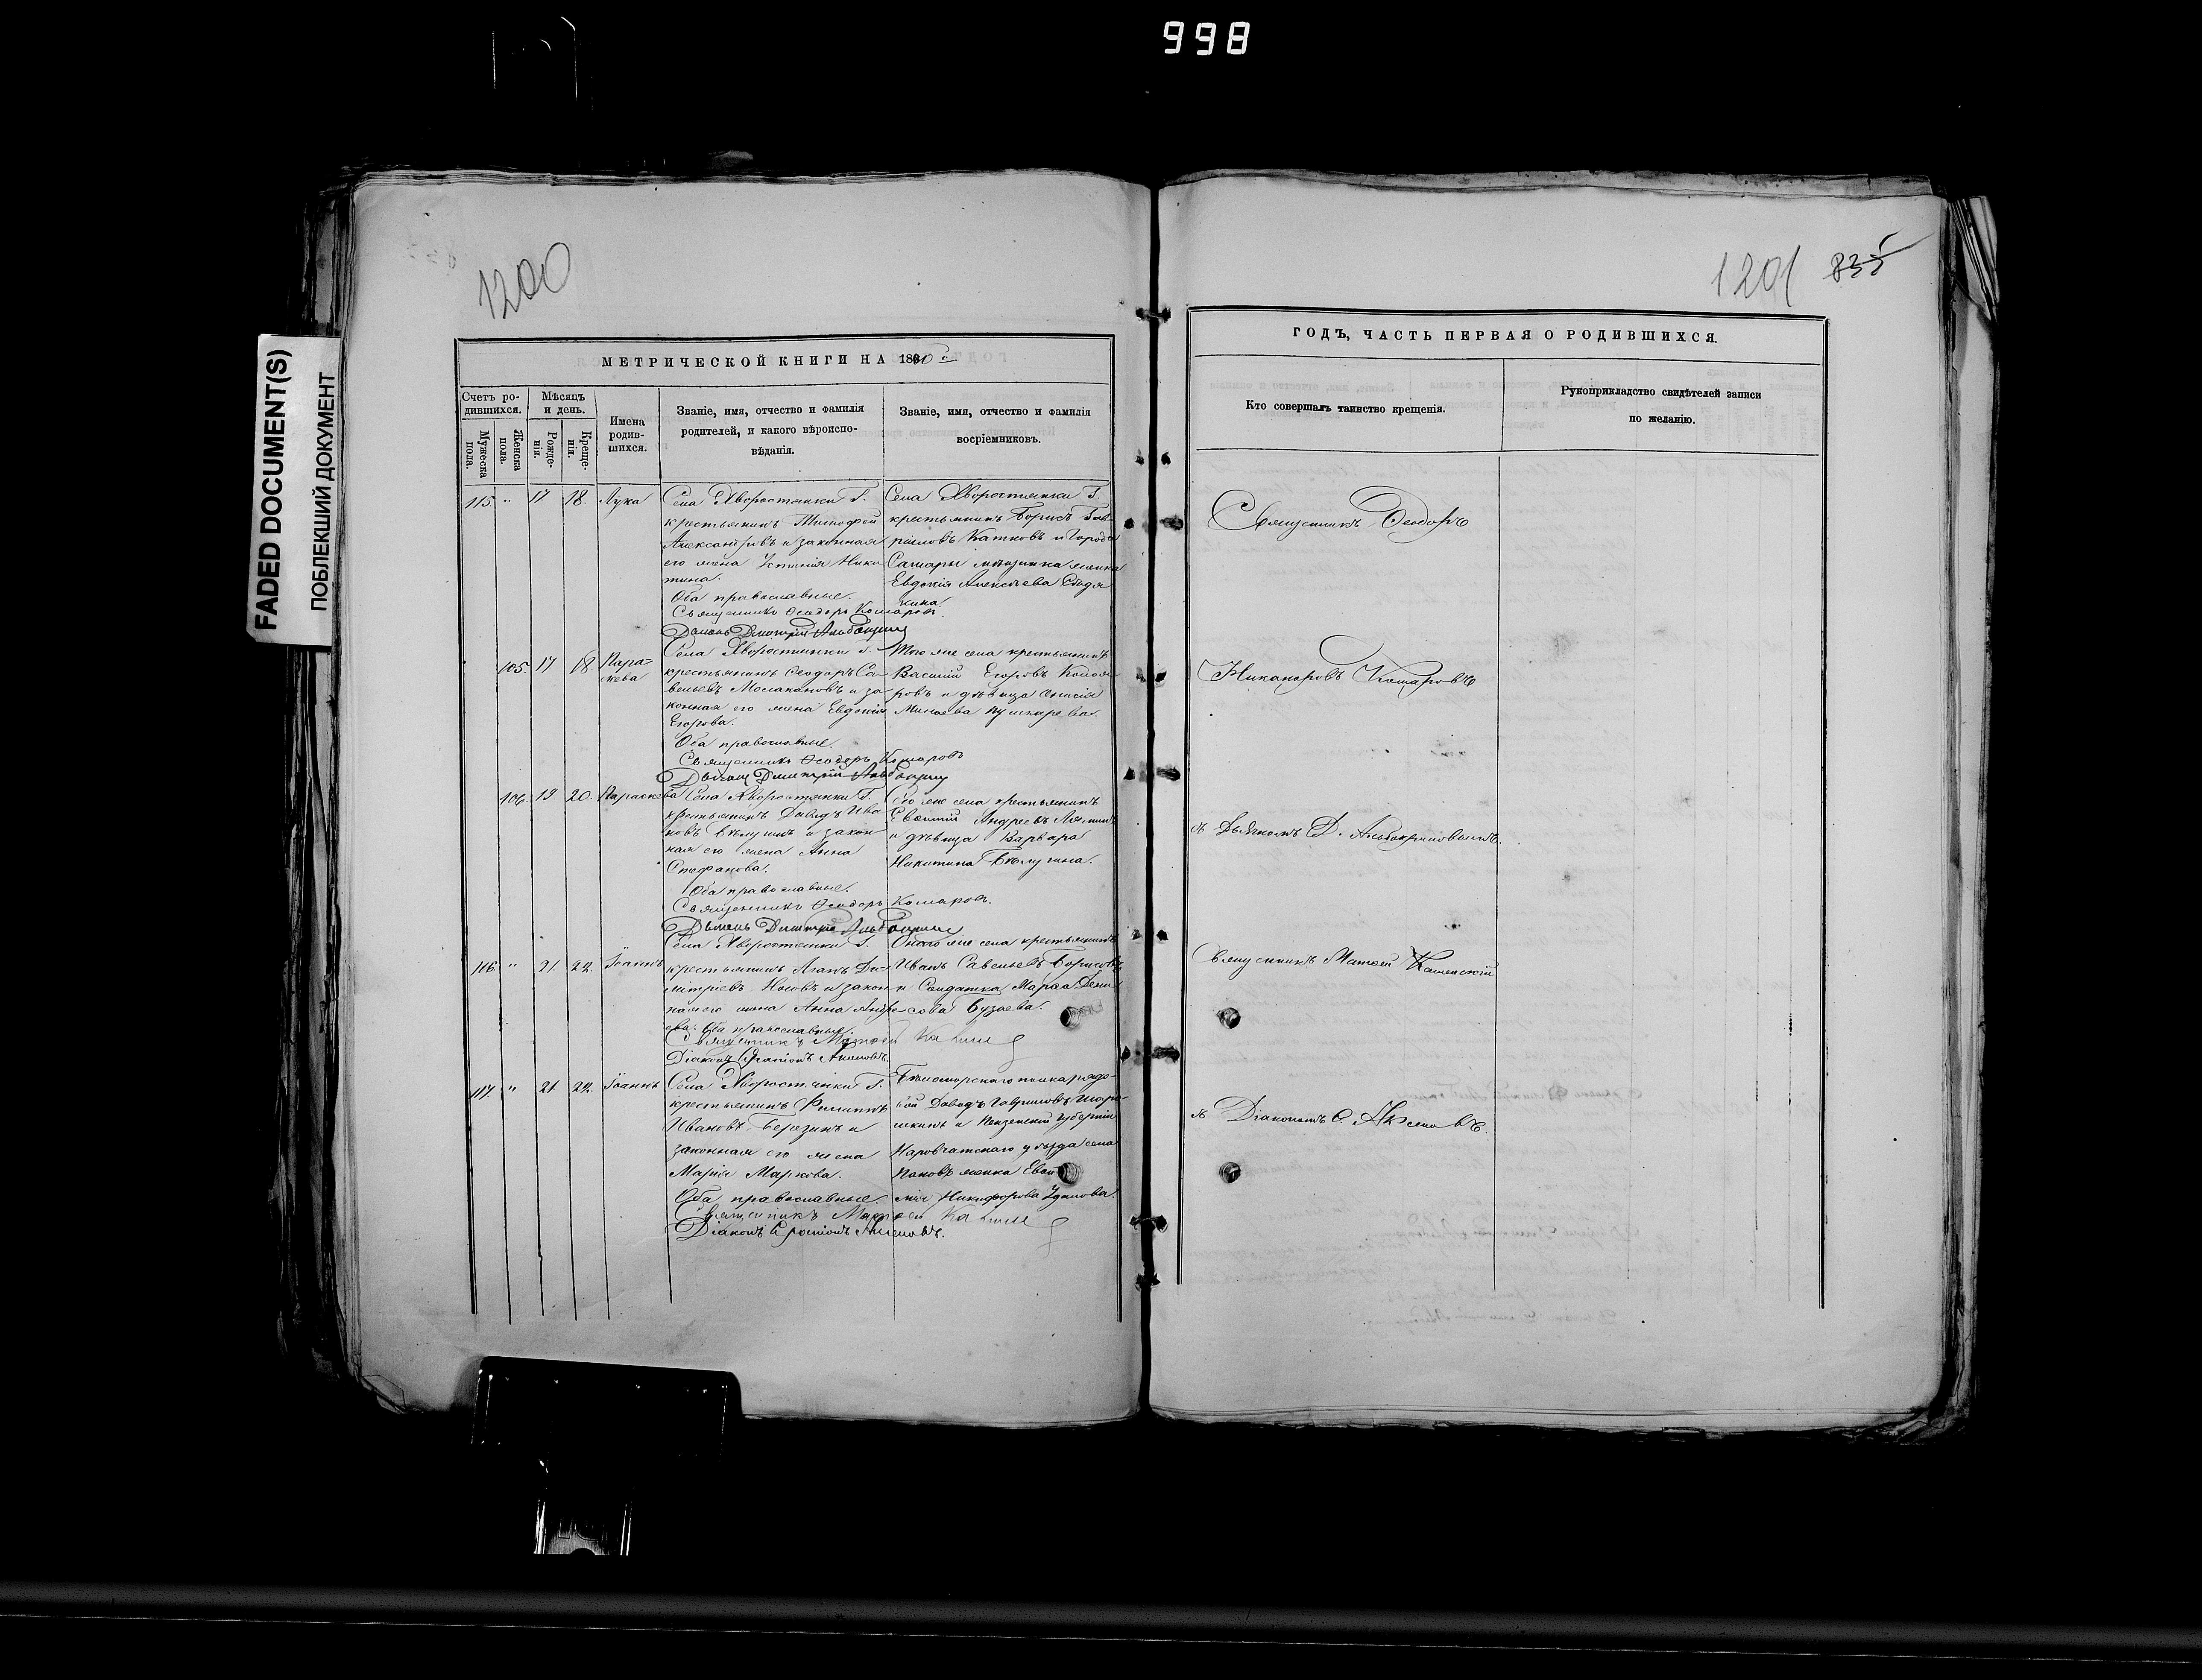 998
FADED DOCUMENT(S)
ПОБЛЕКШИЙ ДОКУМЕНТ
1200
МЕТРИЧЕСКОЙ КНИГИ НА 1880
Счетъ ро-
дившихся.
Мужеска
пола.
Женска
пола.
Мѣсяцъ
и день.
Рожде-
нія.
Креще-
нія.
Имена
родив-
шихся.
Званіе, имя, отчество и фамилія
родителей, и какого вѣроиспо-
вѣданія.
Званіе, имя, отчество и фамилія
воспріемниковъ.
115. " 17 18. Лука
Села Хворостянки Г.
крестьянинъ Тимофей
Александровъ и законная
его жена Устинія Ники
тина.
Оба православные.
Священникъ Ѳеодоръ Комаровъ
Села Хворостянки Г.
крестьянинъ Борисъ Гав-
риловъ Катковъ и города
Самары мѣщинка
Евдокія Алексѣева
105. 17 18 Пара-
скева
Села Хворостянки Г.
крестьянинъ Ѳеодоръ Са-
вельевъ Молакановъ и за-
конная его жена Евдокія
Егорова.
Оба православные.
Священникъ Ѳеодоръ Комаровъ
Того же села крестьянинъ
Василій Егоровъ
ровъ и дѣвица
Минаева Пушкарева.
106. 19 20. Параскева
Села Хворостянки Г.
крестьянинъ Давидъ Ива
новъ Бѣлугинъ и закон-
ная его жена Анна
Стефанова.
Оба православные.
Священникъ Ѳеодоръ Комаровъ.
же села крестьянинъ
Андреевъ
и дѣвица Варвара
Никитина Бѣлугина.
116. " 21. 22. Іоаннъ
Села Хворостянки Г.
крестьянинъ Ди-
митріевъ Носовъ и закон-
ная его жена Анна Андре-
ева. Оба православные.
Священникъ Матѳей
Діаконъ
Онаго же села крестьянинъ
Иванъ Савельевъ Борисовъ
и Солдатка Марѳа Дени
сова Бузаева.
117. " 21. 22. Іоаннъ
Села Хворостянки Г.
крестьянинъ Филиппъ
Ивановъ Березинъ и
законная его жена
Марія Маркова.
Оба православные.
Священникъ Матѳей
Діаконъ
Бѣломорскаго полка рядо-
вой Давидъ Гавриловъ
и Пензенской губерніи
Наровчатскаго уѣзда села
женка
Никифорова
1201 835
ГОДЪ, ЧАСТЬ ПЕРВАЯ О РОДИВШИХСЯ.
Кто совершалъ таинство крещенія.
Рукоприкладство свидѣтелей записи
по желанію.
Священникъ Ѳеодоръ
Никаноровъ Комаровъ
съ Дьякономъ Д.
Священникъ Матѳей Каменскій
съ Діакономъ С. Аксеновъ.